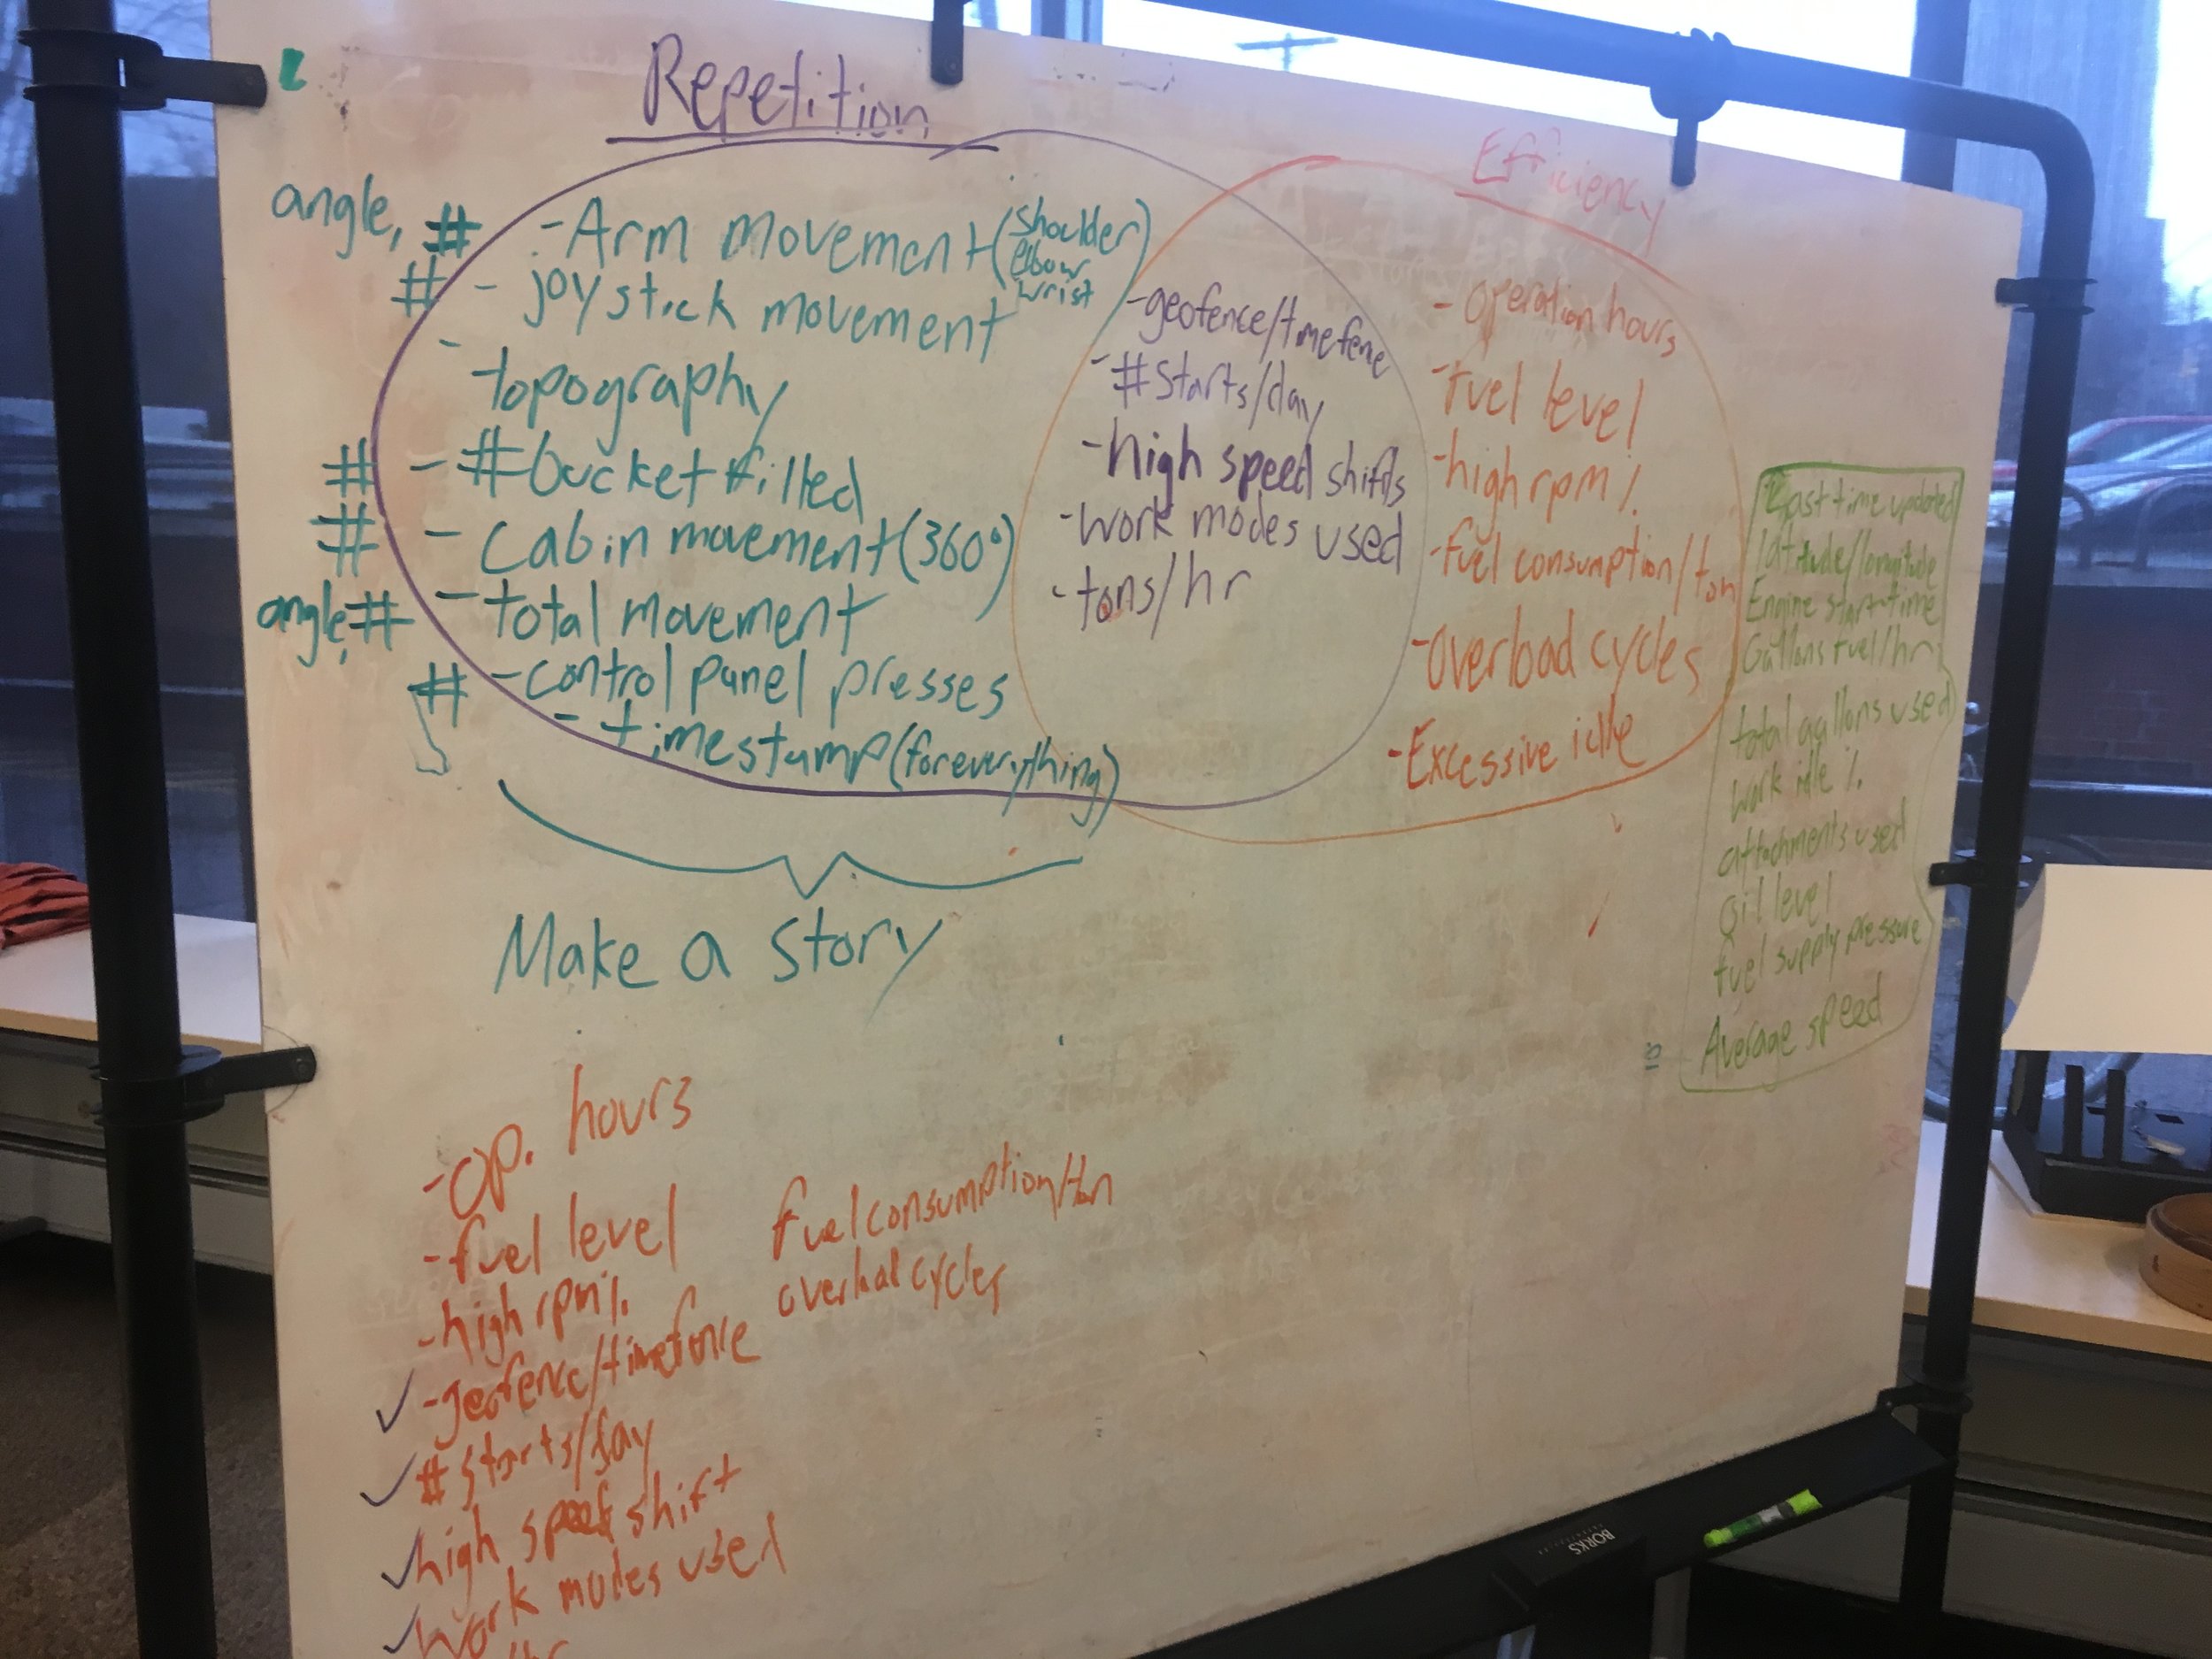 Repetition
angle, # - Arm movement (shoulder
elbow
wrist)
# - joystick movement
- topography
# - # bucket filled
# - Cabin movement (360°)
angle, # - total movement
# - control panel presses
- timestamp (for everything)
Make a story
- geofence/timefence
- # starts/day
- high speed shifts
- work modes used
- tons/hr
Efficiency
- Operation hours
- fuel level
- high rpm %
- fuel consumption/ton
- Overload cycles
- Excessive idle
Last time updated
latitude/longitude
Engine start time
Gallons fuel/hr
total gallons used
work idle %
attachments used
oil level
fuel supply pressure
Average speed
- op. hours
- fuel level
- high rpm %
✓ - geofence/timefence
✓ # starts/day
✓ high speed shift
✓ work modes used
/hr
fuel consumption/ton
overload cycles
BORKS